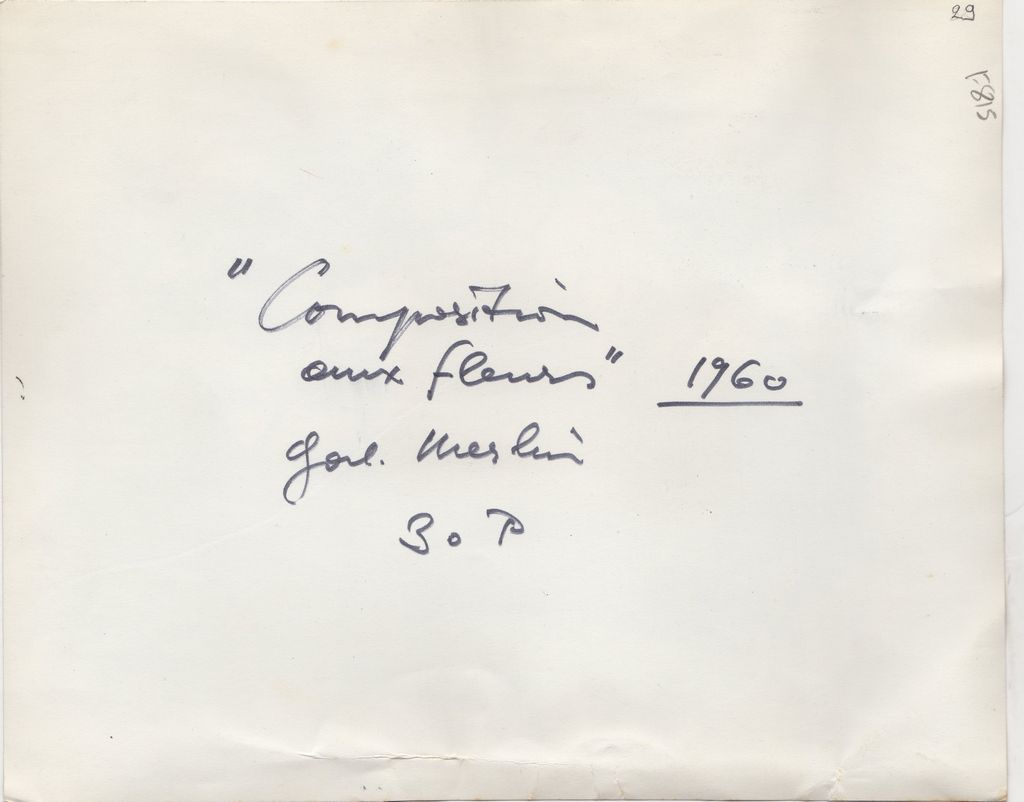 29
" Composition
aux fleurs" 1960
Gal. Merlin
30 P